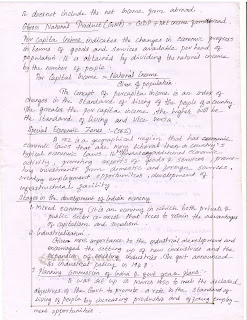 It doesnot include the net income from abroad.
Gross National Product (GNP) = GDP + net income from abroad.
Per Capita Income indicates the changes in economic progress
in terms of goods and services available per head of
population. It is obtained by dividing the national income
by the number of people.
Per Capital Income = National Income
Size of population
The concept of percapita Income is an index of
changes in the standards of living of the people of a country
the greater the per capita income, the higher will be
the standard of living and Vice versa.
Special Economic Zone :- (SEZ)
A SEZ is a geographical region that has economic
economic laws that are more liberal than a country's
typical economic laws. It
activity, promoting exports of goods & services, promo-
ting investments from domestic and foreign sources,
creating employment opportunities, development of
infrastructural facility
Stages in the development of Indian economy
1. Mixed economy (it is an economy in which both private &
public sector co-exist that tries to retain the advantages
of capitalism and socialism.
2. Industrialisation
Given more importance to the industrial development and
encouraged the setting up of new industries and the
expansion of existing industries. The govt announced
its industrial policy in 1948
3. Planning Commission of India & govt year's plans:-
It was set up in March 1950 to meet the declared
objectives of the Govt to promote a rise in the standard of
living of people by increasing production and offering employ-
ment opportunities